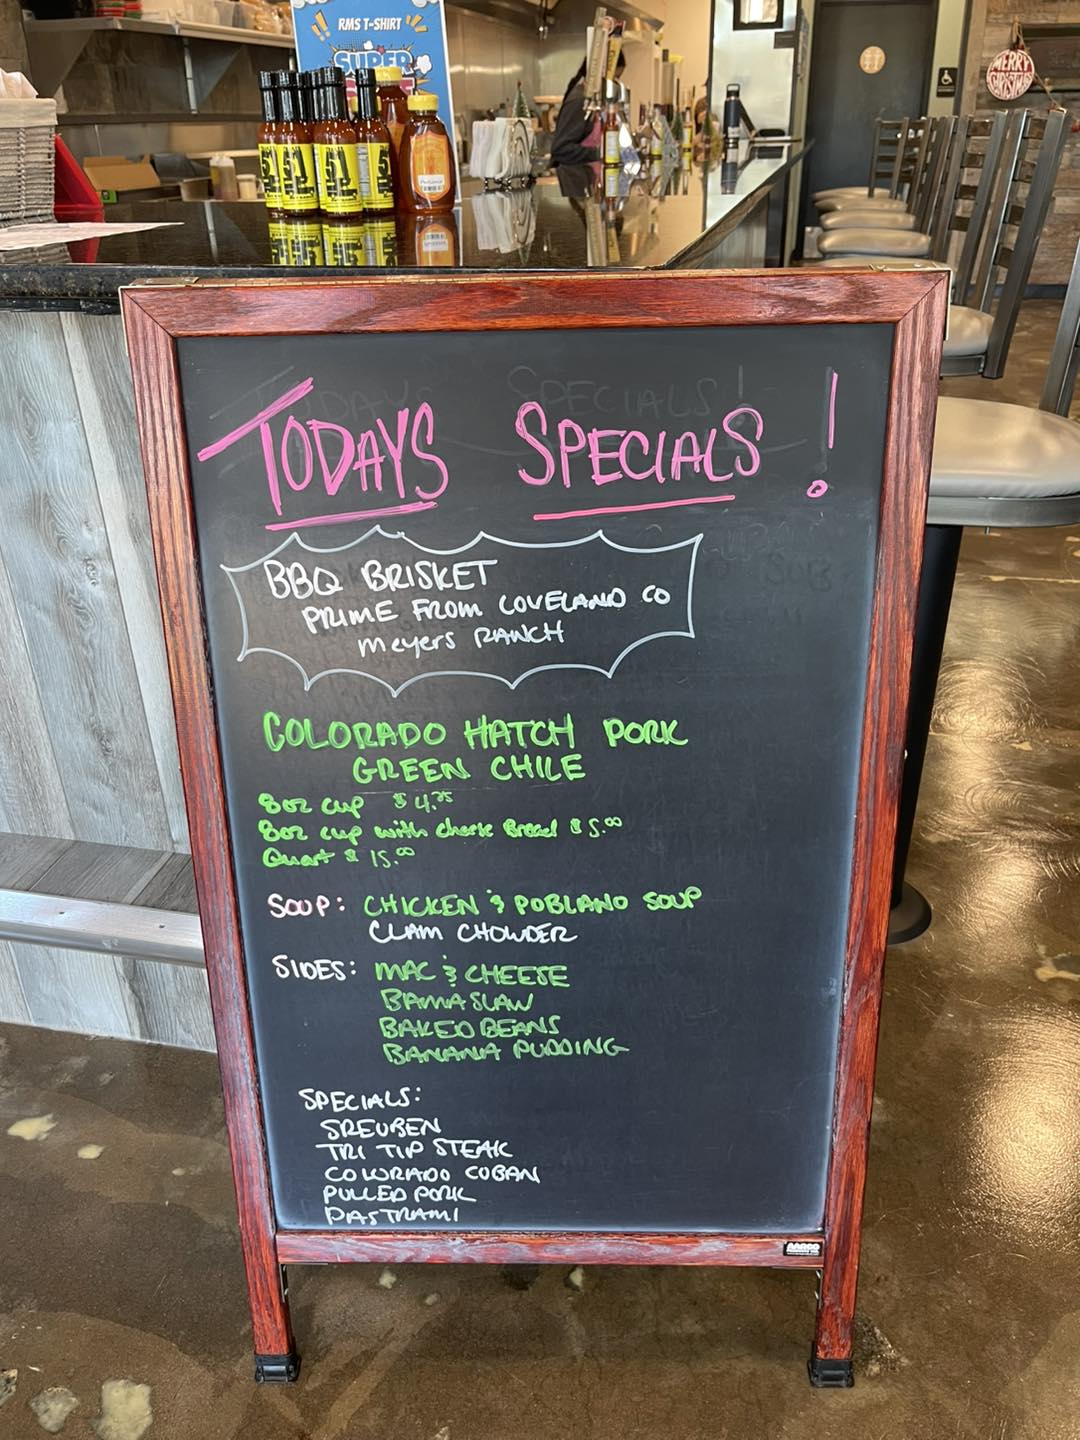 RMS T-SHIRT
SUPER
51
51
51
51
MERRY
CHRISTMAS
TODAYS SPECIALS!
BBQ BRISKET
PRIME FROM LOVELAND CO
Meyers RANCH
COLORADO HATCH PORK
GREEN CHILE
8oz cup $4.75
8oz cup with cheese Bread $5.00
Quart $15.00
SOUP: CHICKEN & POBLANO SOUP
CLAM CHOWDER
SIDES: MAC & CHEESE
BAMA SLAW
BAKED BEANS
BANANA PUDDING
SPECIALS:
SREUBEN
TRI TIP STEAK
COLORADO CUBAN
PULLED PORK
PASTRAMI
AARCO